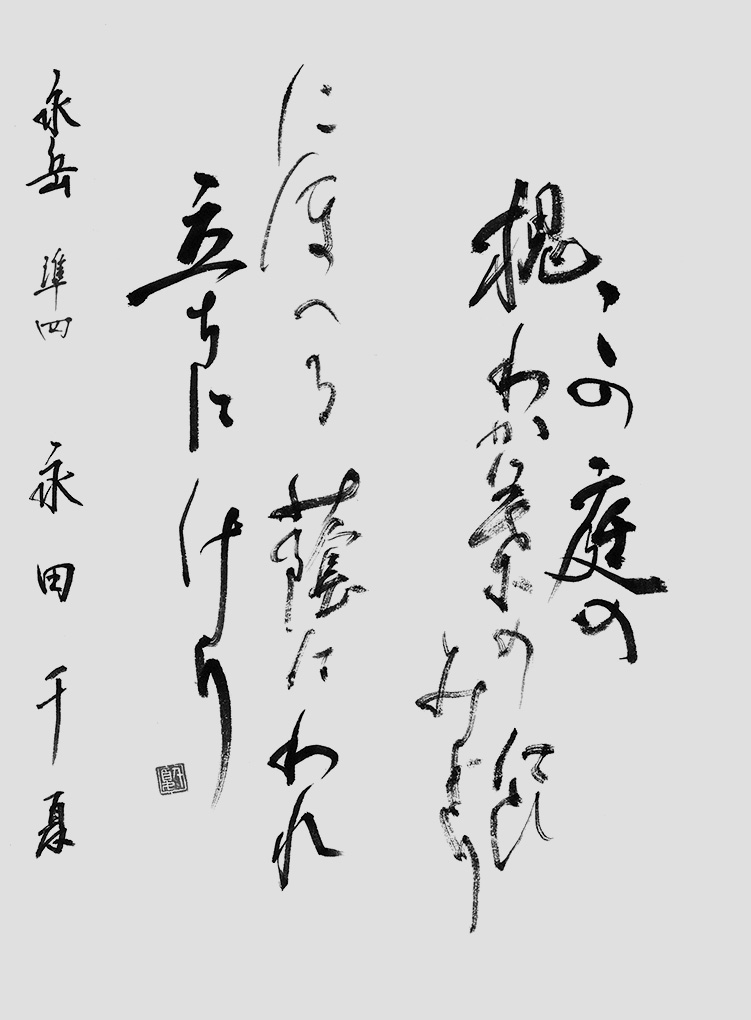 この庭の
槐わか葉のにひ
みとり
にほへる蔭にわれ
立ちにけり
永岳 準四 永田千夏